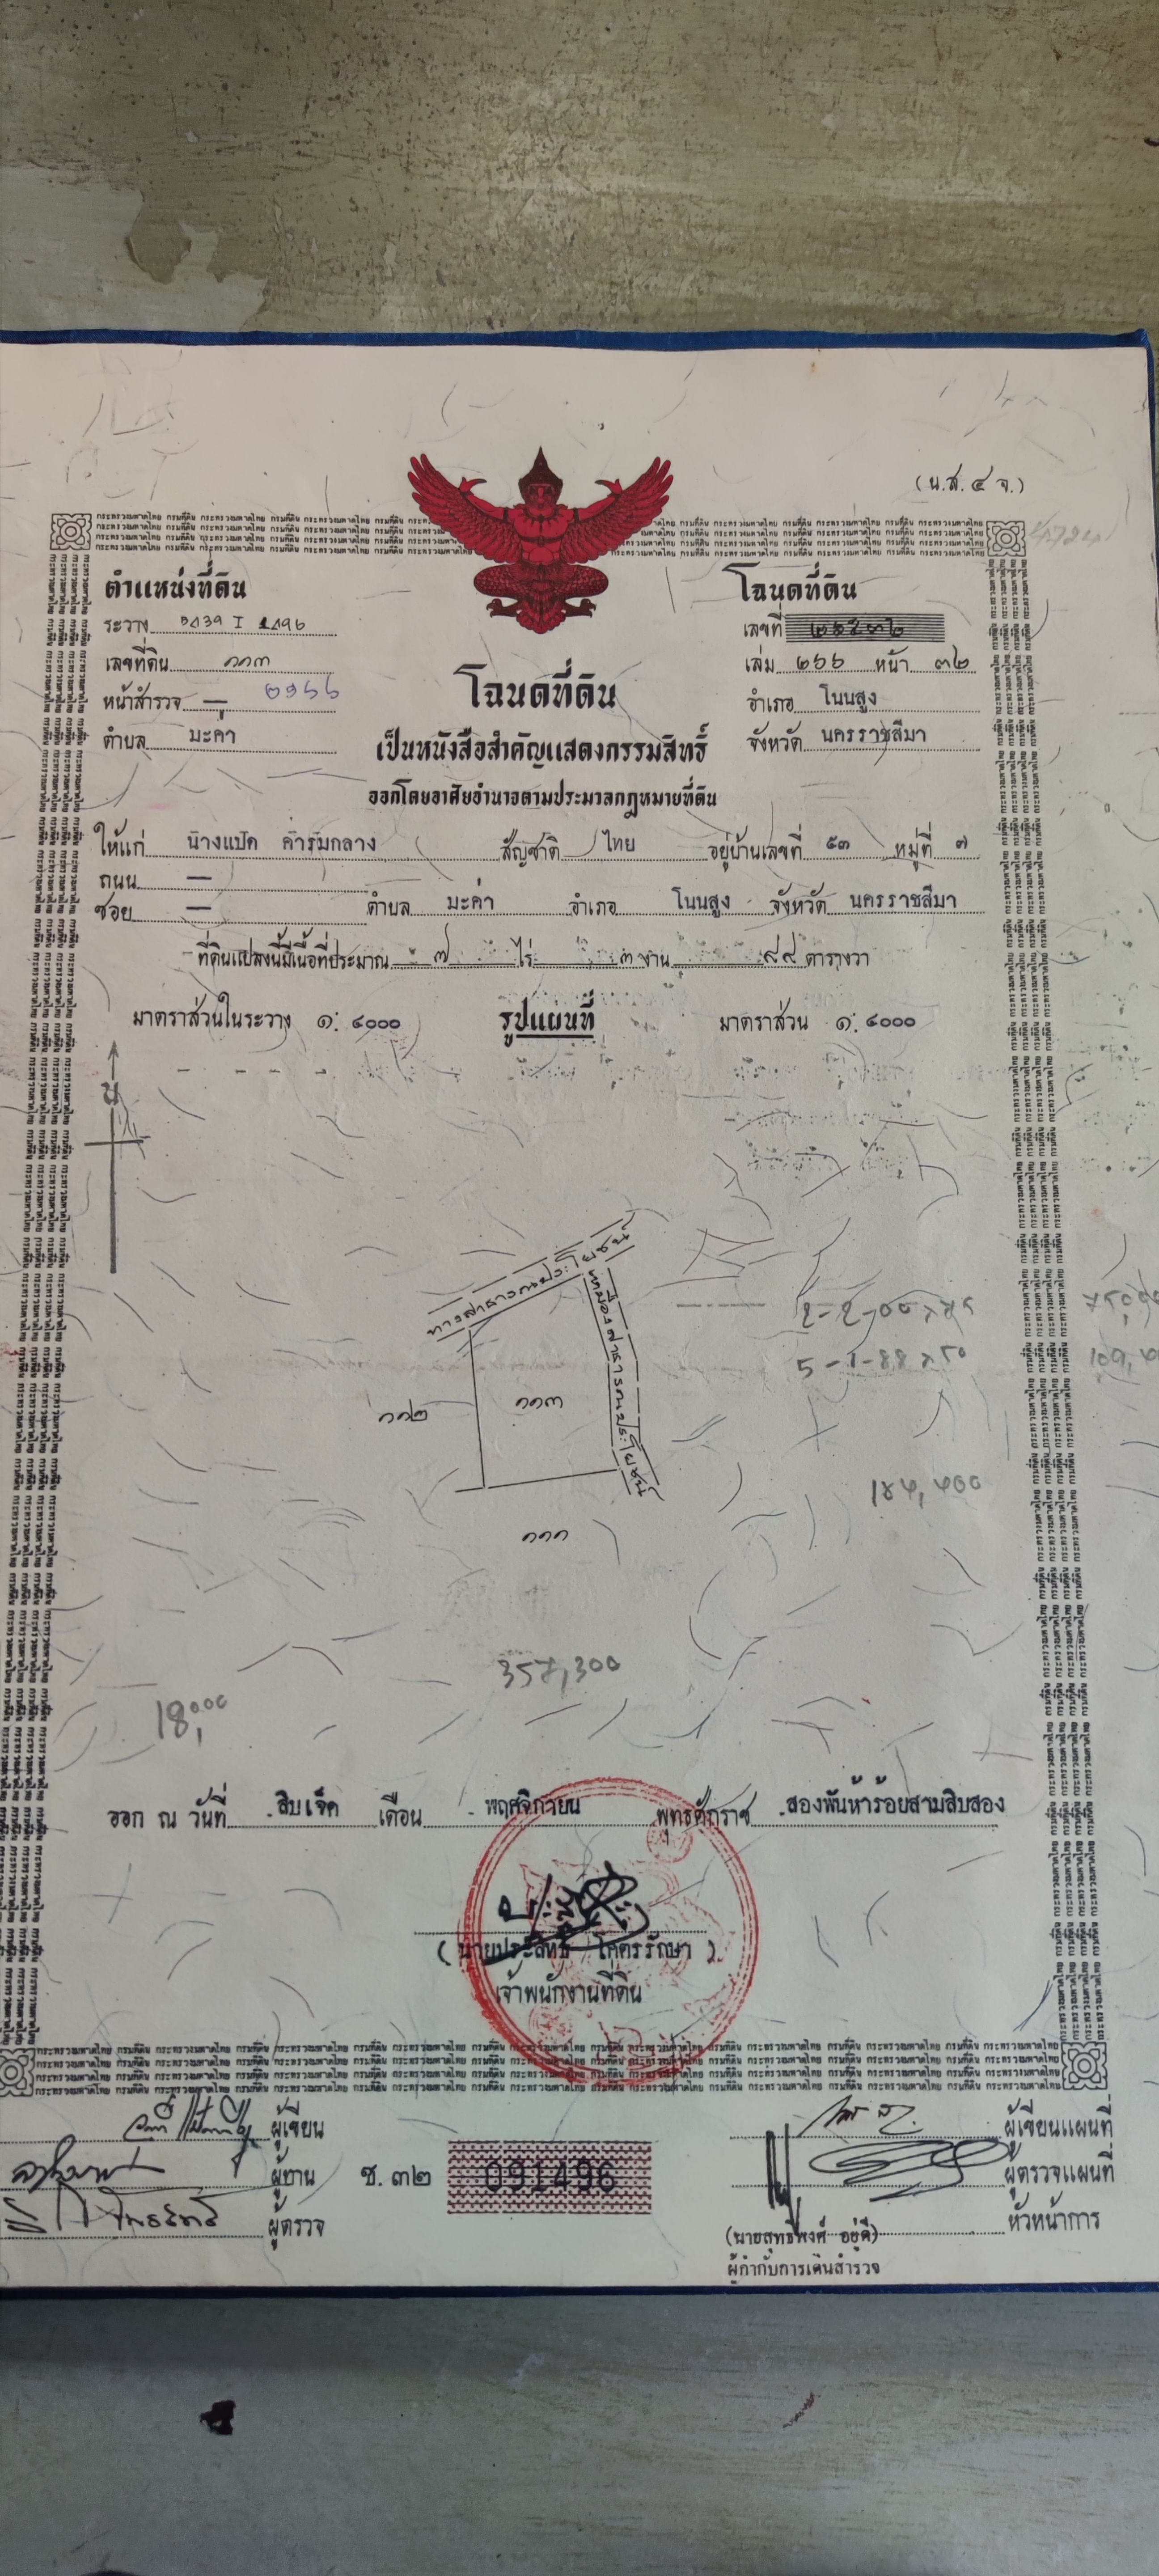 (น.ส.๔ จ.)
ตำแหน่งที่ดิน
ระวาง 5439 I 1496
เลขที่ดิน ๑๑๓
หน้าสำรวจ —
ตำบล มะค่า
โฉนดที่ดิน
เลขที่
เล่ม ๒๖๖ หน้า ๓๒
อำเภอ โนนสูง
จังหวัด นครราชสีมา
โฉนดที่ดิน
เป็นหนังสือสำคัญแสดงกรรมสิทธิ์
ออกโดยอาศัยอำนาจตามประมวลกฎหมายที่ดิน
ให้แก่ นางแป้ด ค้ำรมกลาง สัญชาติ ไทย อยู่บ้านเลขที่ ๕๓ หมู่ที่ ๗
ถนน —
ซอย — ตำบล มะค่า อำเภอ โนนสูง จังหวัด นครราชสีมา
ที่ดินแปลงนี้มีเนื้อที่ประมาณ ๗ ไร่ ๓ งาน ๘๘ ตารางวา
มาตราส่วนในระวาง ๑: ๔๐๐๐ รูปแผนที่ มาตราส่วน ๑: ๔๐๐๐
น
ทางสาธารณประโยชน์
เหมืองสาธารณประโยชน์
๑๑๒ ๑๑๓
5-1-88 x 50
๑๑๑
357,300
18,000
ออก ณ วันที่ สิบเจ็ด เดือน พฤศจิกายน พุทธศักราช สองพันห้าร้อยสามสิบสอง
(นายประสิทธิ์ โคตรรักษา)
เจ้าพนักงานที่ดิน
ผู้เขียน
ผู้ทาน
ผู้ตรวจ
ช.๓๒ 091496
ผู้เขียนแผนที่
ผู้ตรวจแผนที่
หัวหน้าการ
(นายสุทธิพงศ์ อยู่ดี)
ผู้กำกับการเดินสำรวจ